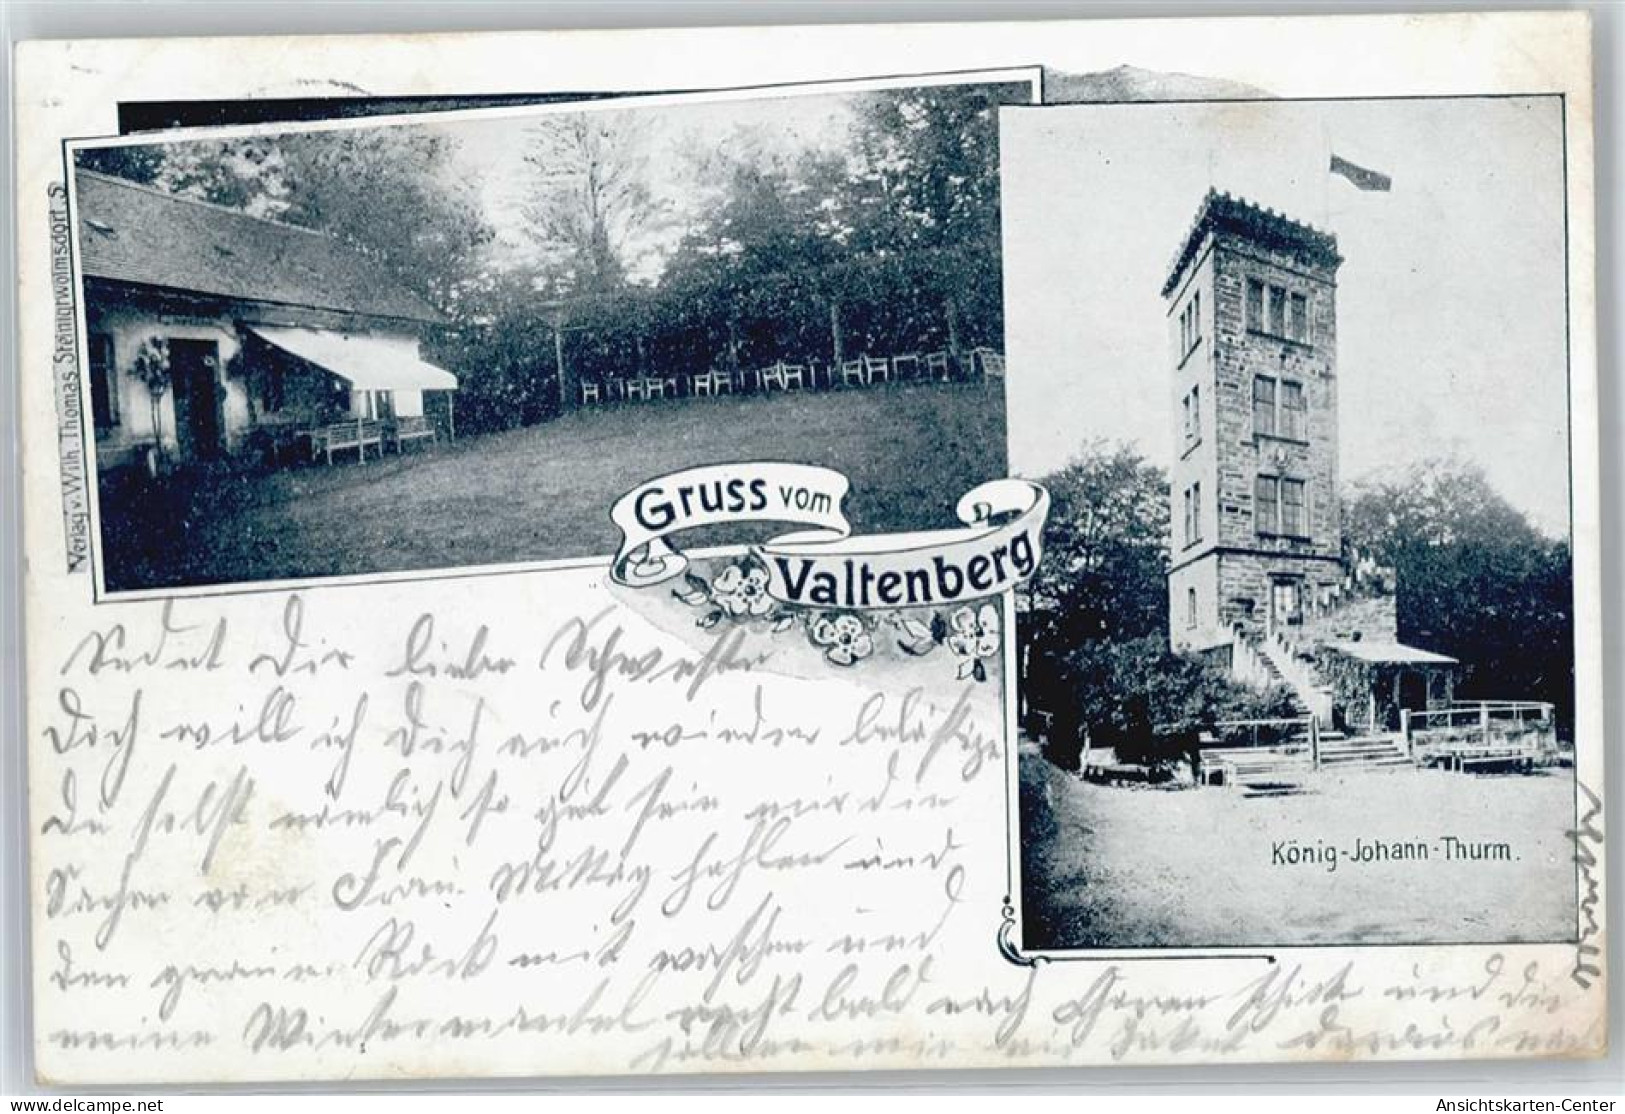 Verlag v. Wilh. Thomas, Steinigtwolmsdorf i. S.
Gruss vom
Valtenberg
König-Johann-Thurm.
Sendet Dir liebe Schwester
Doch will ich Dich auch wieder belästige
Du selbst nämlich so gut sein mir die
Sachen von Frau Mittag hohlen und
den Rock mit waschen und
meine Wintermantel recht bald nach schick und die
sollen mir ein Jaket daraus nach
delcampe.net
Ansichtskarten-Center